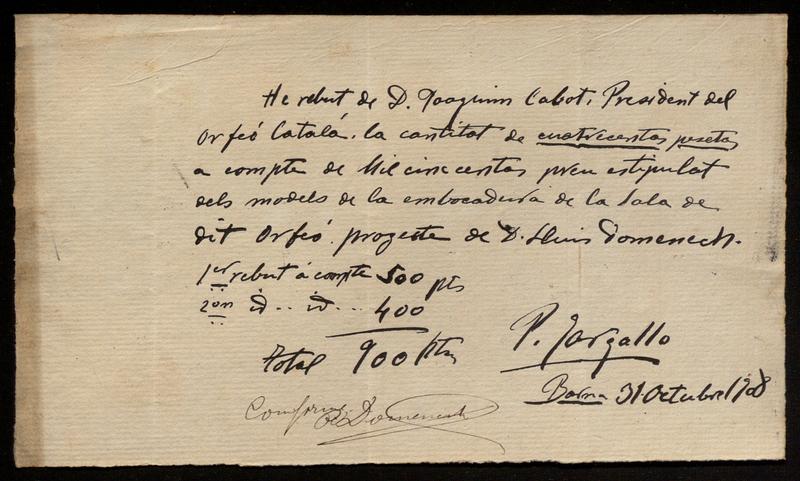 He rebut de D. Joaquim Cabot, President del
Orfeó Catalá, la cantitat de cuatrecentas pesetas
a compte de Mil cinccentas preu estipulat
dels models de la embocadura de la Sala de
dit Orfeó. progecte de D. Lluis Domenech.
1er rebut á compte 500 pts
2on id .. id ... 400
Total 900 Pts
P. Gargallo
Barna 31. Octubre 1908
Conforme Domenech